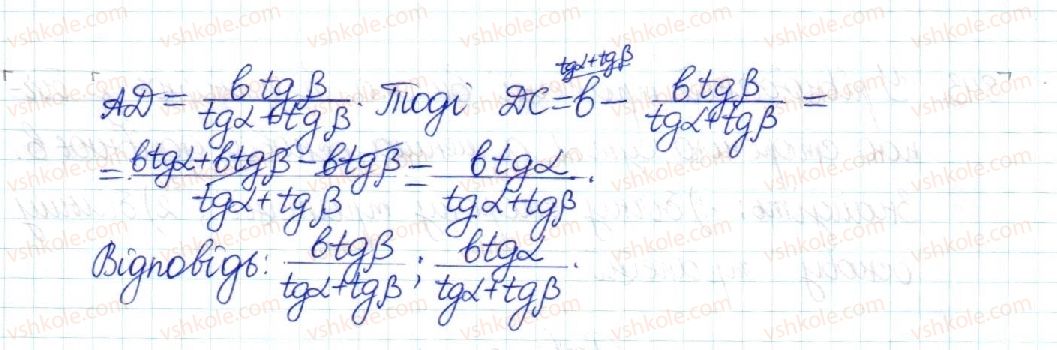 AD = \frac{в tgβ}{tgα + tgβ}. Тоді DC = в^{tgα+tgβ} − \frac{в tgβ}{tgα + tgβ} =
= \frac{вtgα + вtgβ − вtgβ}{tgα + tgβ} = \frac{вtgα}{tgα + tgβ}.
Відповідь: \frac{вtgβ}{tgα + tgβ}; \frac{вtgα}{tgα + tgβ}.